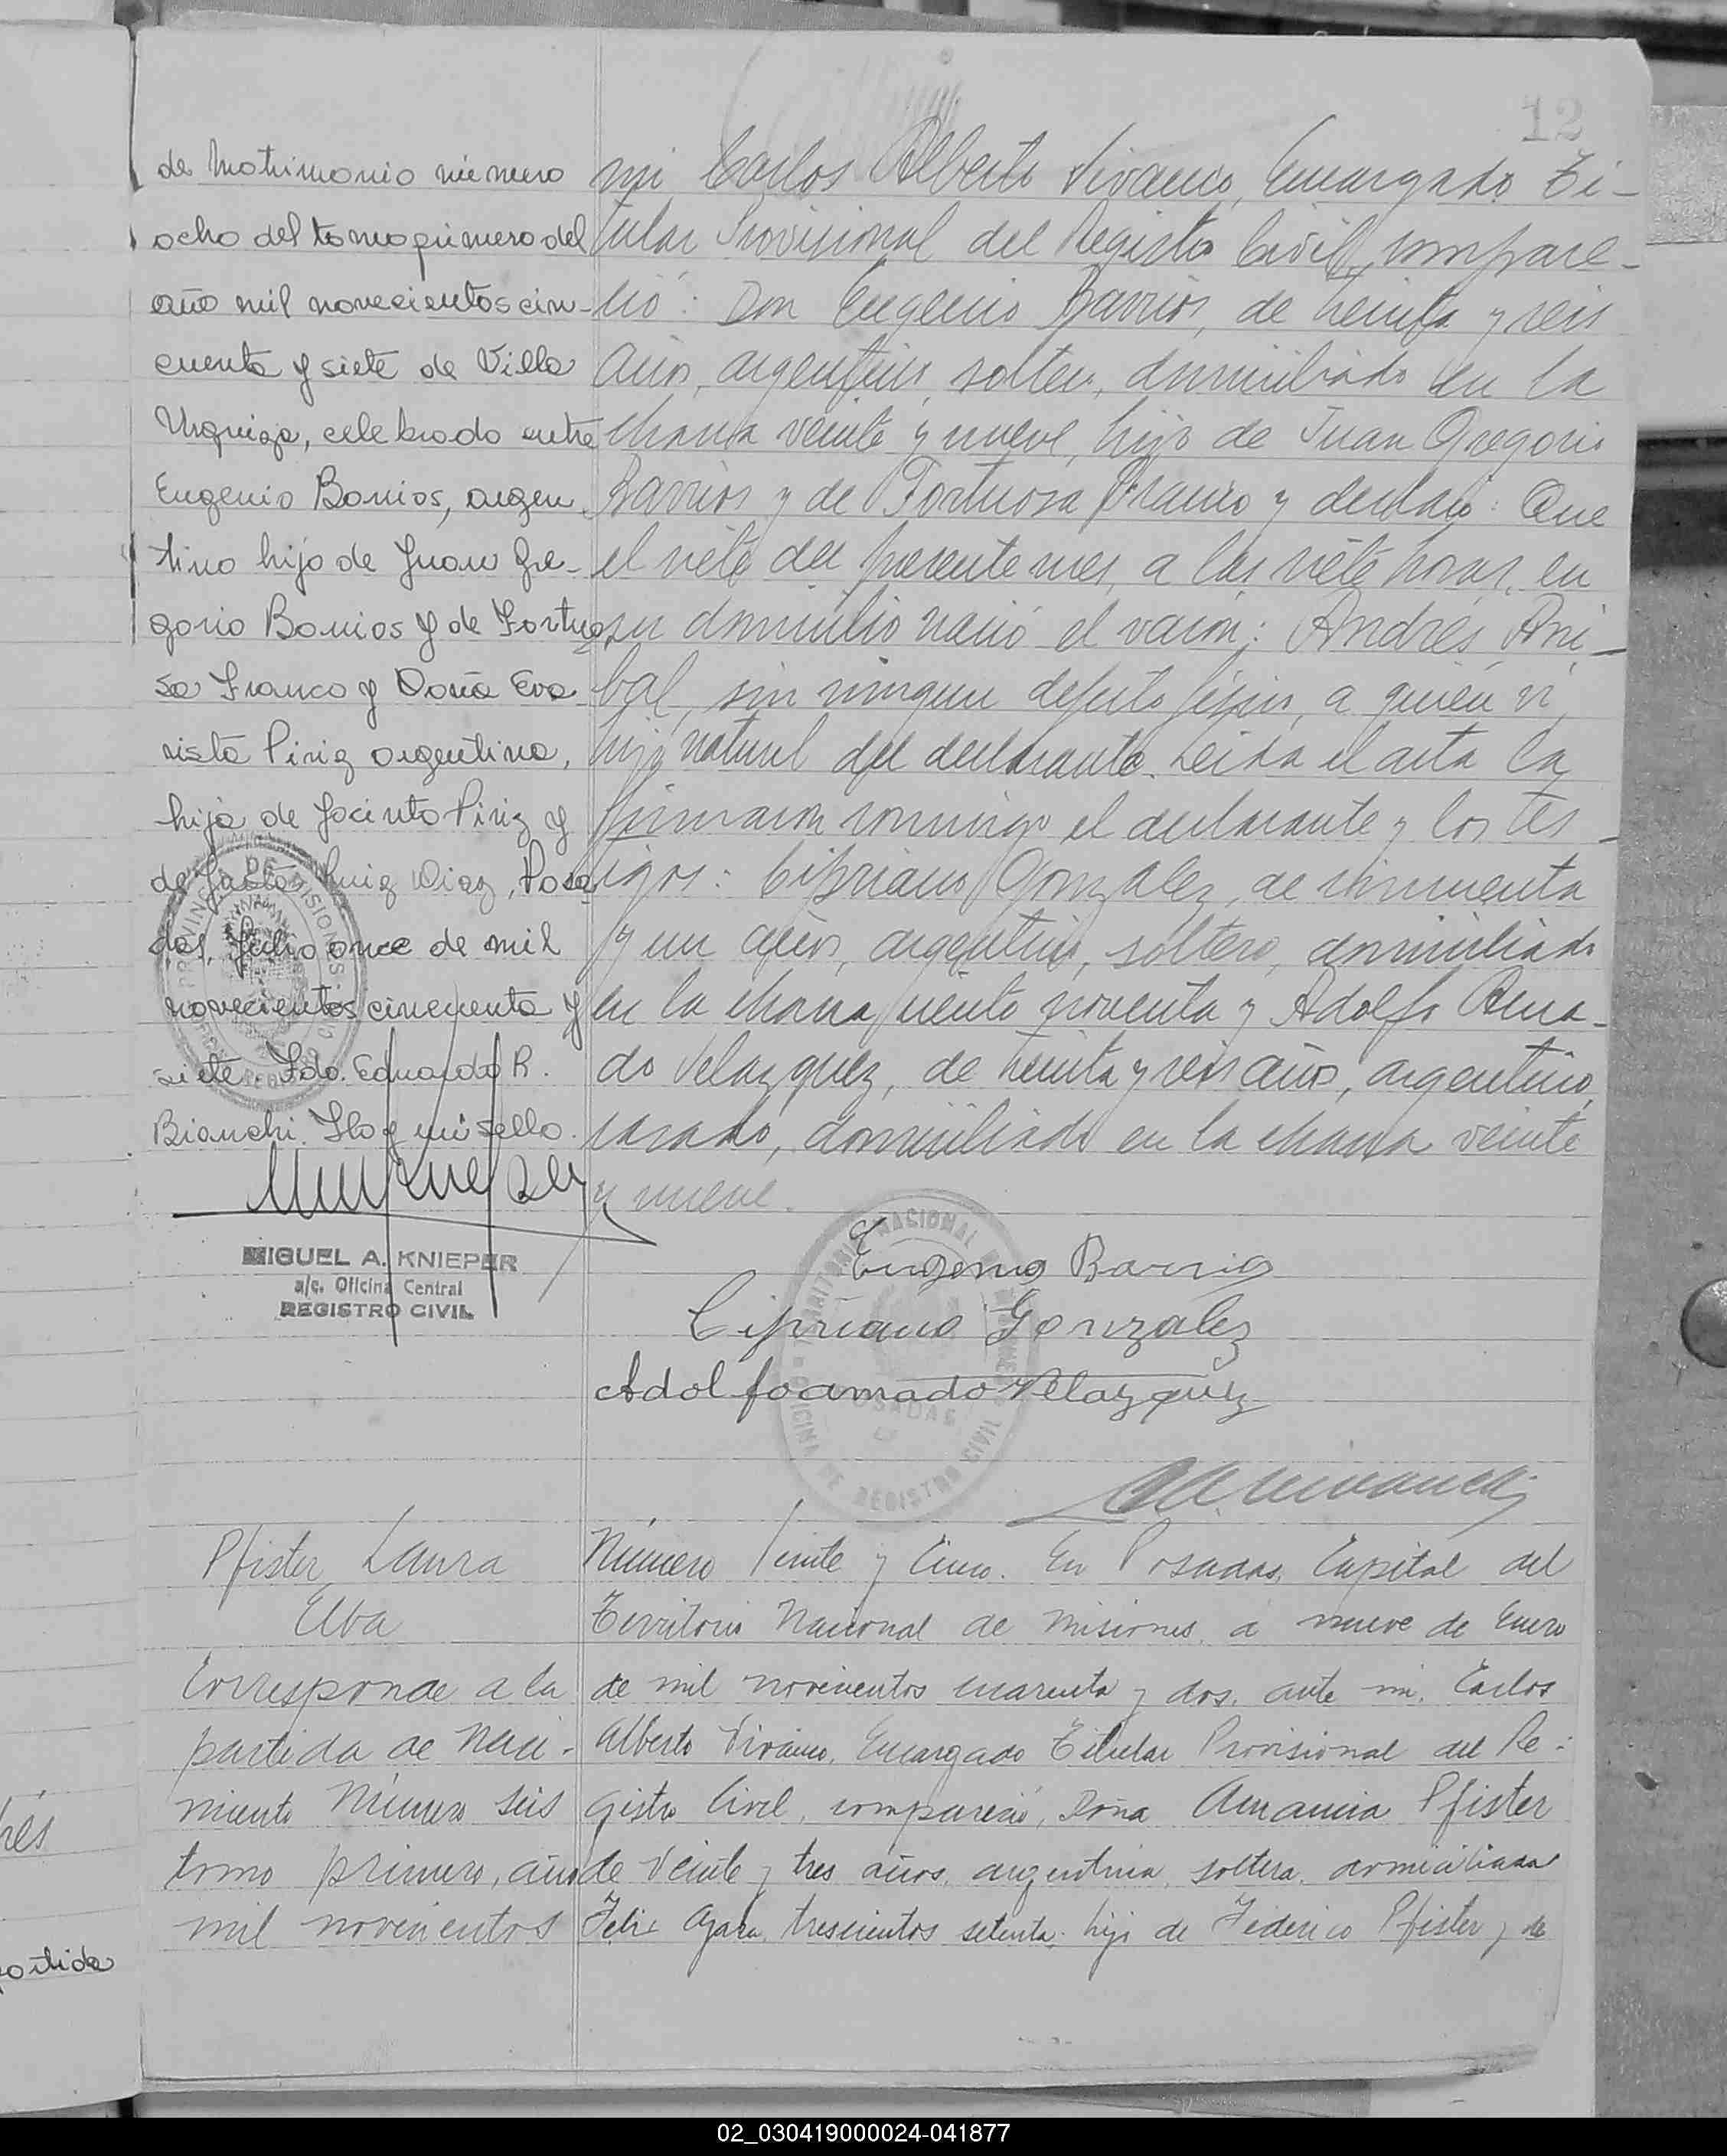 12
de Matrimonio número
ocho del tomo primero del
año mil novecientos cin-
cuenta y siete de Villa
Urquiza, celebrado entre
Eugenio Barrios, argen-
tino hijo de Juan Gre-
gorio Barrios y de Fortuo
sa Franco y Doña Eva
rista Piriz argentina,
hija de Jacinto Piriz y
de Ruiz Diaz, Posa
das, Julio once de mil
novecientos cincuenta y
siete. Fdo. Eduardo R.
Bianchi. Hay un sello.
MIGUEL A. KNIEPER
a/c. Oficina Central
REGISTRO CIVIL
PROVINCIA DE MISIONES
mi Carlos Alberto Vivanco, Encargado Ti-
tular Provisional del Registro Civil, compare-
ció: Don Eugenio Barrios, de treinta y seis
años, argentino, soltero, domiciliado en la
chacra veinte y nueve, hijo de Juan Gregorio
Barrios y de Fortuosa Franco y declaró: Que
el siete del presente mes, a las siete horas, en
su domicilio nació el varón: Andrés Aní-
bal, sin ningun defecto físico, a quien vi,
hijo natural del declarante. Leida el acta la
firmaron conmigo el declarante y los tes-
tigos: Cipriano Gonzalez, de cincuenta
y un años, argentino, soltero, domiciliado
en la chacra ciento noventa y Adolfo Ama-
do Velazquez, de treinta y seis años, argentino,
casado, domiciliado en la chacra veinte
y nueve.
Eugenio Barrios
Cipriano Gonzalez
Adolfo amado Velazquez
CAVivanco
TERRITORIO NACIONAL DE MISIONES
POSADAS
OFICINA DE REGISTRO CIVIL
Pfister, Laura
Elba
Corresponde a la
partida de Naci-
miento Número seis
tomo primero, año
mil novecientos
Número Veinte y Cinco. En Posadas, Capital del
Territorio Nacional de Misiones, a nueve de Enero
de mil novecientos cuarenta y dos, ante mi, Carlos
Alberto Vivanco, Encargado Titular Provisional del Re-
gistro Civil, compareció, Doña Amancia Pfister
de Veinte y tres años, argentina, soltera, domiciliada
Felix Azara, trescientos setenta, hija de Federico Pfister y de
rés
partida
02_030419000024-041877